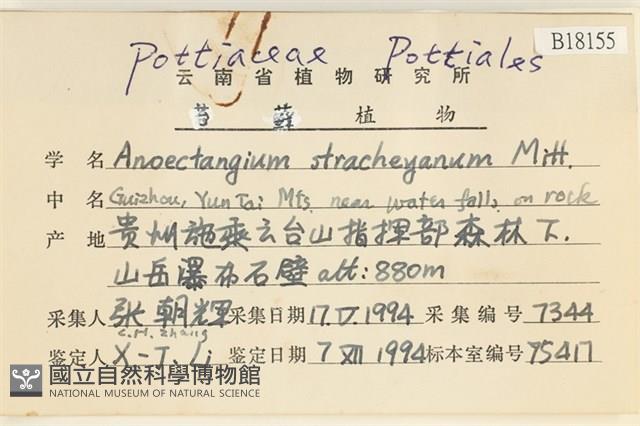 B18155
Pottiaceae Pottiales
云南省植物研究所
苔藓植物
学名 Anoectangium stracheyanum Mitt.
中名 Guizhou, YunTai Mts. near water falls, on rock
产地 贵州施秉云台山指挥部森林下.
山岳瀑布石壁 alt: 880m
采集人 张朝辉 采集日期 17.V.1994 采集编号 7344
C.H. Zhang
鉴定人 X-J. Li 鉴定日期 7 XII 1994 标本室编号 75417
國立自然科學博物館
NATIONAL MUSEUM OF NATURAL SCIENCE